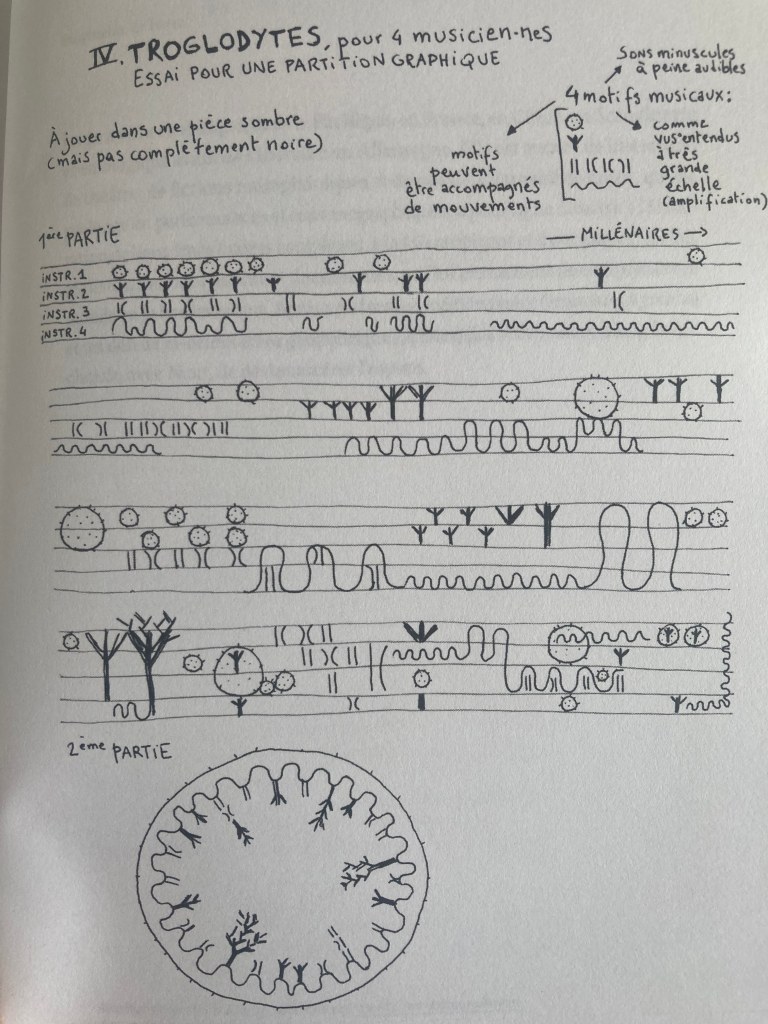 IV. TROGLODYTES, pour 4 musicien·nes
ESSAI POUR UNE PARTITION GRAPHIQUE
À jouer dans une pièce sombre
(mais pas complètement noire)
Sons minuscules
à peine audibles
4 motifs musicaux:
motifs
peuvent
être accompagnés
de mouvements
comme
vus·entendus
à très
grande
échelle
(amplification)
1ère PARTIE
MILLÉNAIRES
INSTR.1
INSTR.2
INSTR.3
INSTR.4
2ème PARTIE